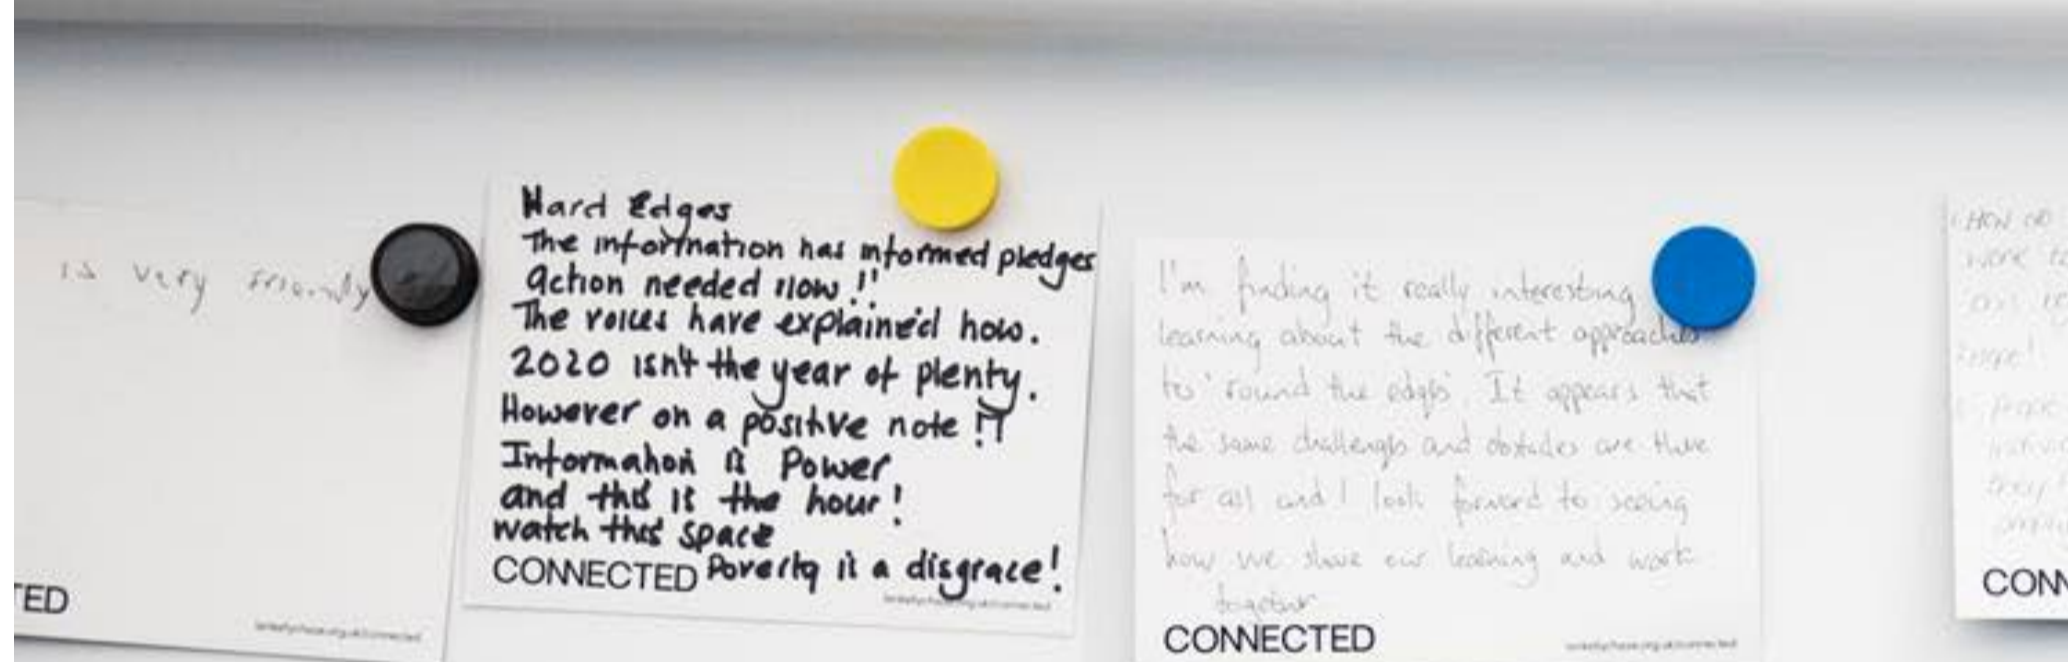 is very friendly
TED
lankellychase.org.uk/connected
Hard Edges
The information has informed pledges
Action needed now!!
The voices have explained how.
2020 isn't the year of plenty.
However on a positive note!!
Information is Power
and this is the hour!
watch this space
CONNECTED Poverty is a disgrace!
lankellychase.org.uk/connected
I'm finding it really interesting
learning about the different approaches
to 'round the edges'. It appears that
the same challenges and obstacles are there
for all and I look forward to seeing
how we share our learning and work
together
CONNECTED
lankellychase.org.uk/connected
HOW DO
work
CONN